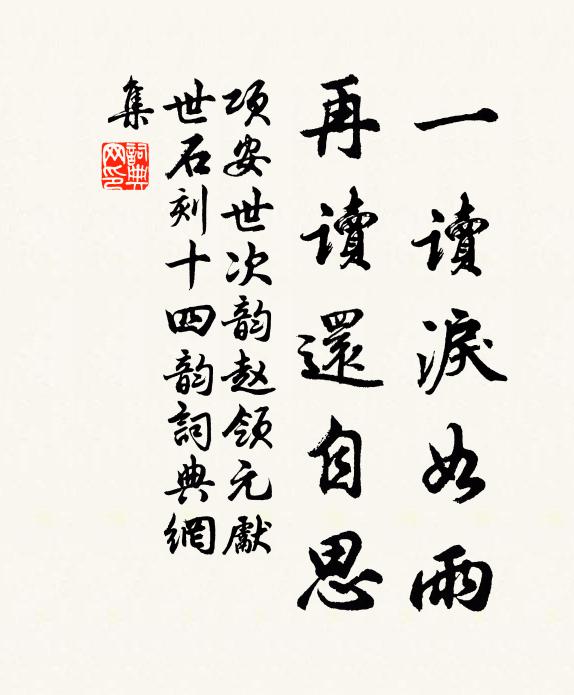 一讀淚如雨
再讀還自思
项安世次韵赵领元獻
世石刻十四韵詞典網
集
詞典網印